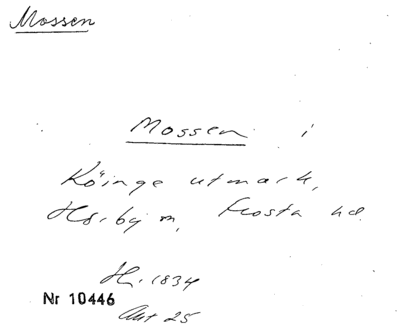 Mossen
Mossen i
Köinge utmark,
Hörby sn, Frosta hd.
H. 1834
Nr 10446
Akt 25